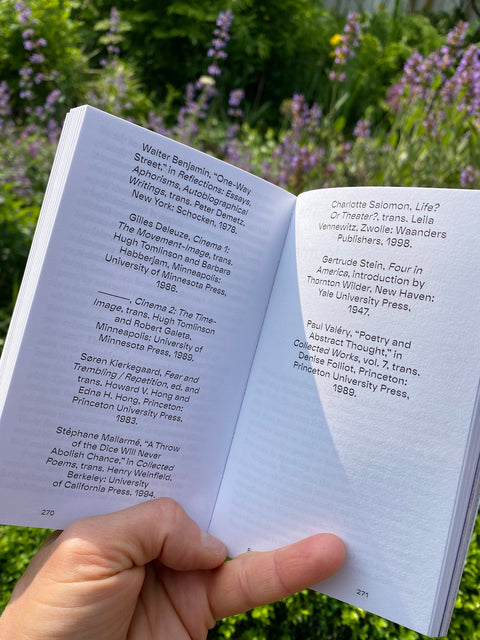 Walter Benjamin, "One-Way
Street," in Reflections: Essays,
Aphorisms, Autobiographical
Writings, trans. Peter Demetz,
New York: Schocken, 1978.
Gilles Deleuze, Cinema 1:
The Movement-Image, trans.
Hugh Tomlinson and Barbara
Habberjam, Minneapolis:
University of Minnesota Press,
1986.
———, Cinema 2: The Time-
Image, trans. Hugh Tomlinson
and Robert Galeta,
Minneapolis: University of
Minnesota Press, 1989.
Søren Kierkegaard, Fear and
Trembling / Repetition, ed. and
trans. Howard V. Hong and
Edna H. Hong, Princeton:
Princeton University Press,
1983.
Stéphane Mallarmé, "A Throw
of the Dice Will Never
Abolish Chance," in Collected
Poems, trans. Henry Weinfield,
Berkeley: University
of California Press, 1994.
270
Charlotte Salomon, Life?
Or Theater?, trans. Leila
Vennewitz, Zwolle: Waanders
Publishers, 1998.
Gertrude Stein, Four in
America, introduction by
Thornton Wilder, New Haven:
Yale University Press,
1947.
Paul Valéry, "Poetry and
Abstract Thought," in
Collected Works, vol. 7, trans.
Denise Folliot, Princeton:
Princeton University Press,
1989.
271